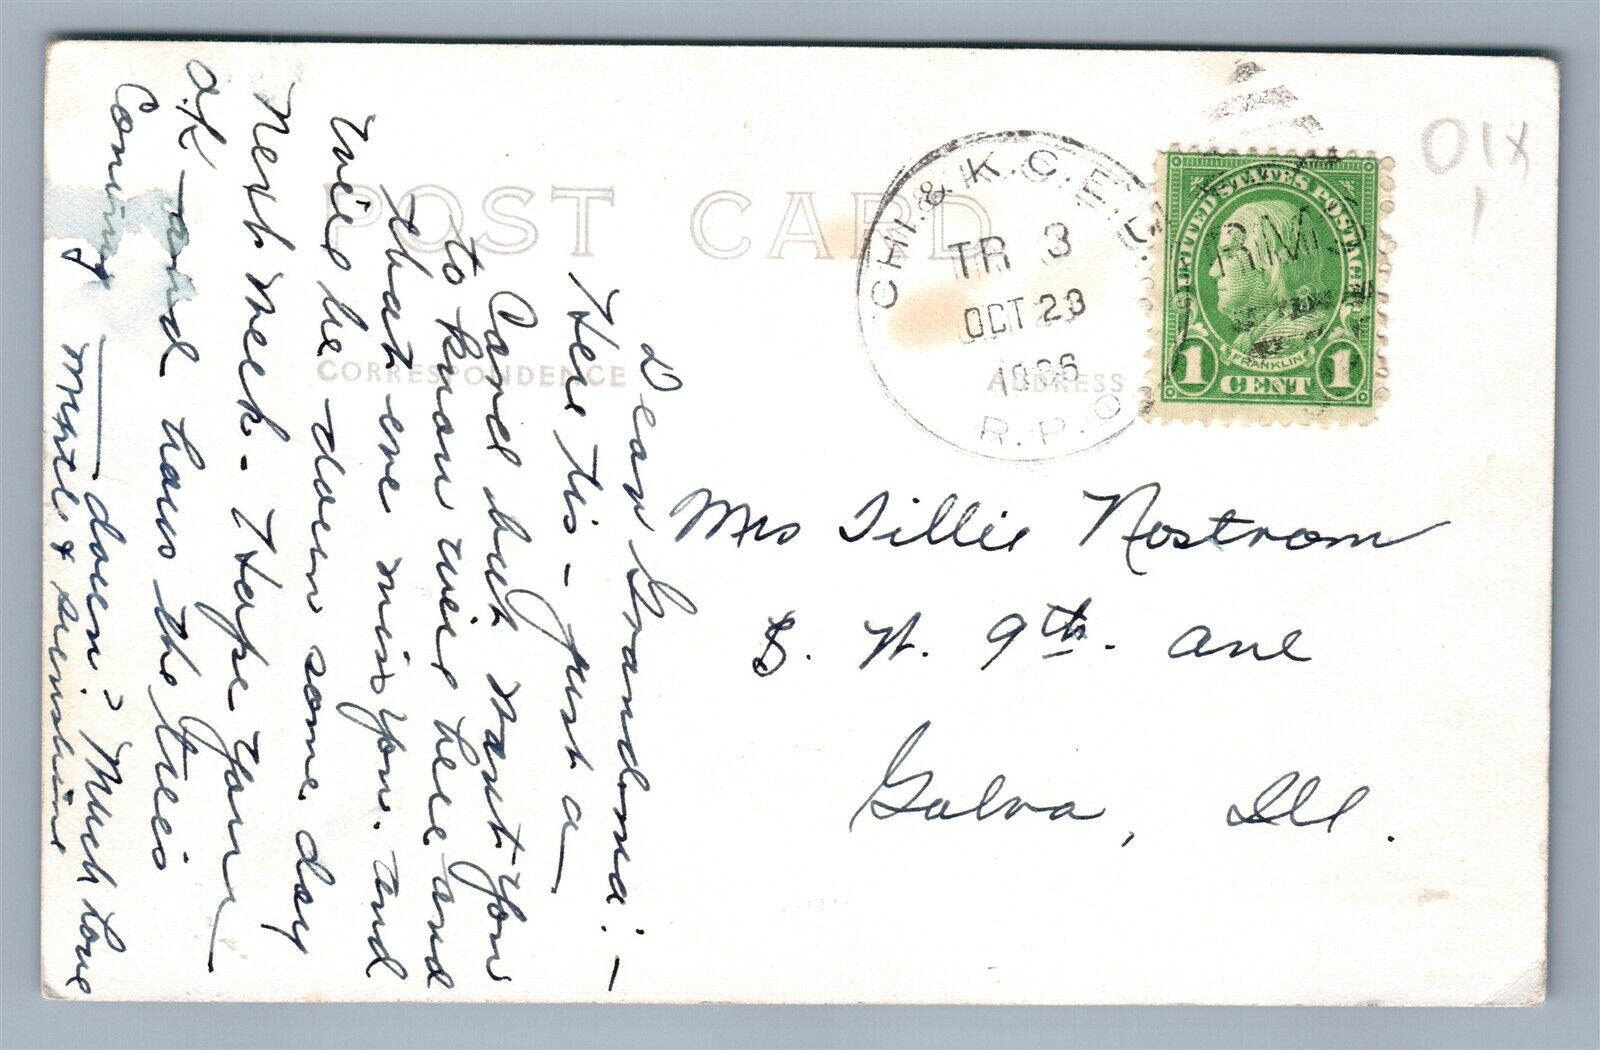 POST CARD
CORRESPONDENCE
ADDRESS
CHI. & K.C. E.D.
TR 3
OCT 23
R.P.O.
R.M.S
UNITED STATES POSTAGE
FRANKLIN
1 CENT 1
01X
1
Mrs Tillie Nostrom
S. W. 9th. Ave
Galva, Ill.
Dear Grandma:-
Here tis - just a
Card but want you
to know we're here and
that we miss you. and
We'll be down some day
next week. Hope your
O.K. and haws the trees
Coming down? Much love
Myrtle & sunshine